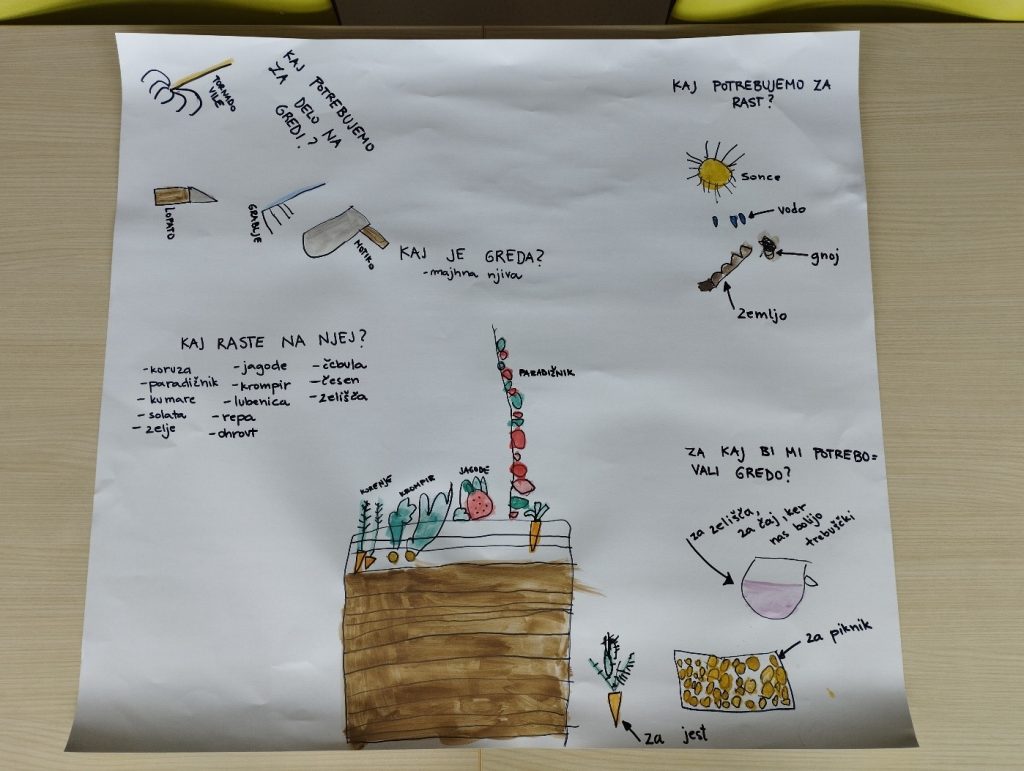 KAJ POTREBUJEMO
ZA DELO NA
GREDI?
TORNADO
VILE
LOPATO
GRABLJE
MOTIKO
KAJ JE GREDA?
-majhna njiva
KAJ POTREBUJEMO ZA
RAST?
Sonce
vodo
gnoj
Zemljo
KAJ RASTE NA NJEJ?
-koruza
-paradižnik
-kumare
-solata
-zelje
-jagode
-krompir
-lubenica
-repa
-ohrovt
-čebula
-česen
-zelišča
PARADIŽNIK
KORENJE
KROMPIR
JAGODE
ZA KAJ BI MI POTREBO=
VALI GREDO?
za zelišča,
za čaj, ker
nas bolijo
trebuščki
za piknik
za jest